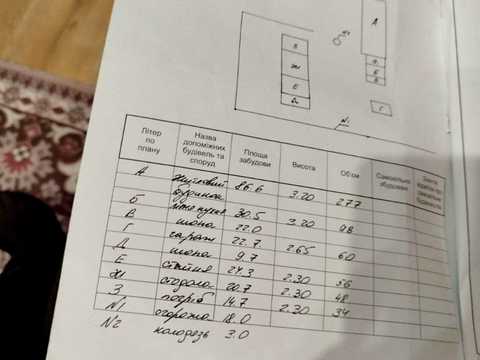 А
З
Ж
Е
Д
Г
N1
Літер по плану
Назва допоміжних будівель та споруд
Площа забудови
Висота
Об'єм
Самовільно збудовані
А житловий будинок 86.6 3.20 277
Б 30.5 3.20 98
В 22.0
Г гараж 22.7 2.65 60
Д 9.7
Е стайня 24.3 2.30 56
Ж стодола 20.7 2.30 48
З погріб 14.7 2.30 34
N1 огорожа 18.0
N2 колодязь 3.0